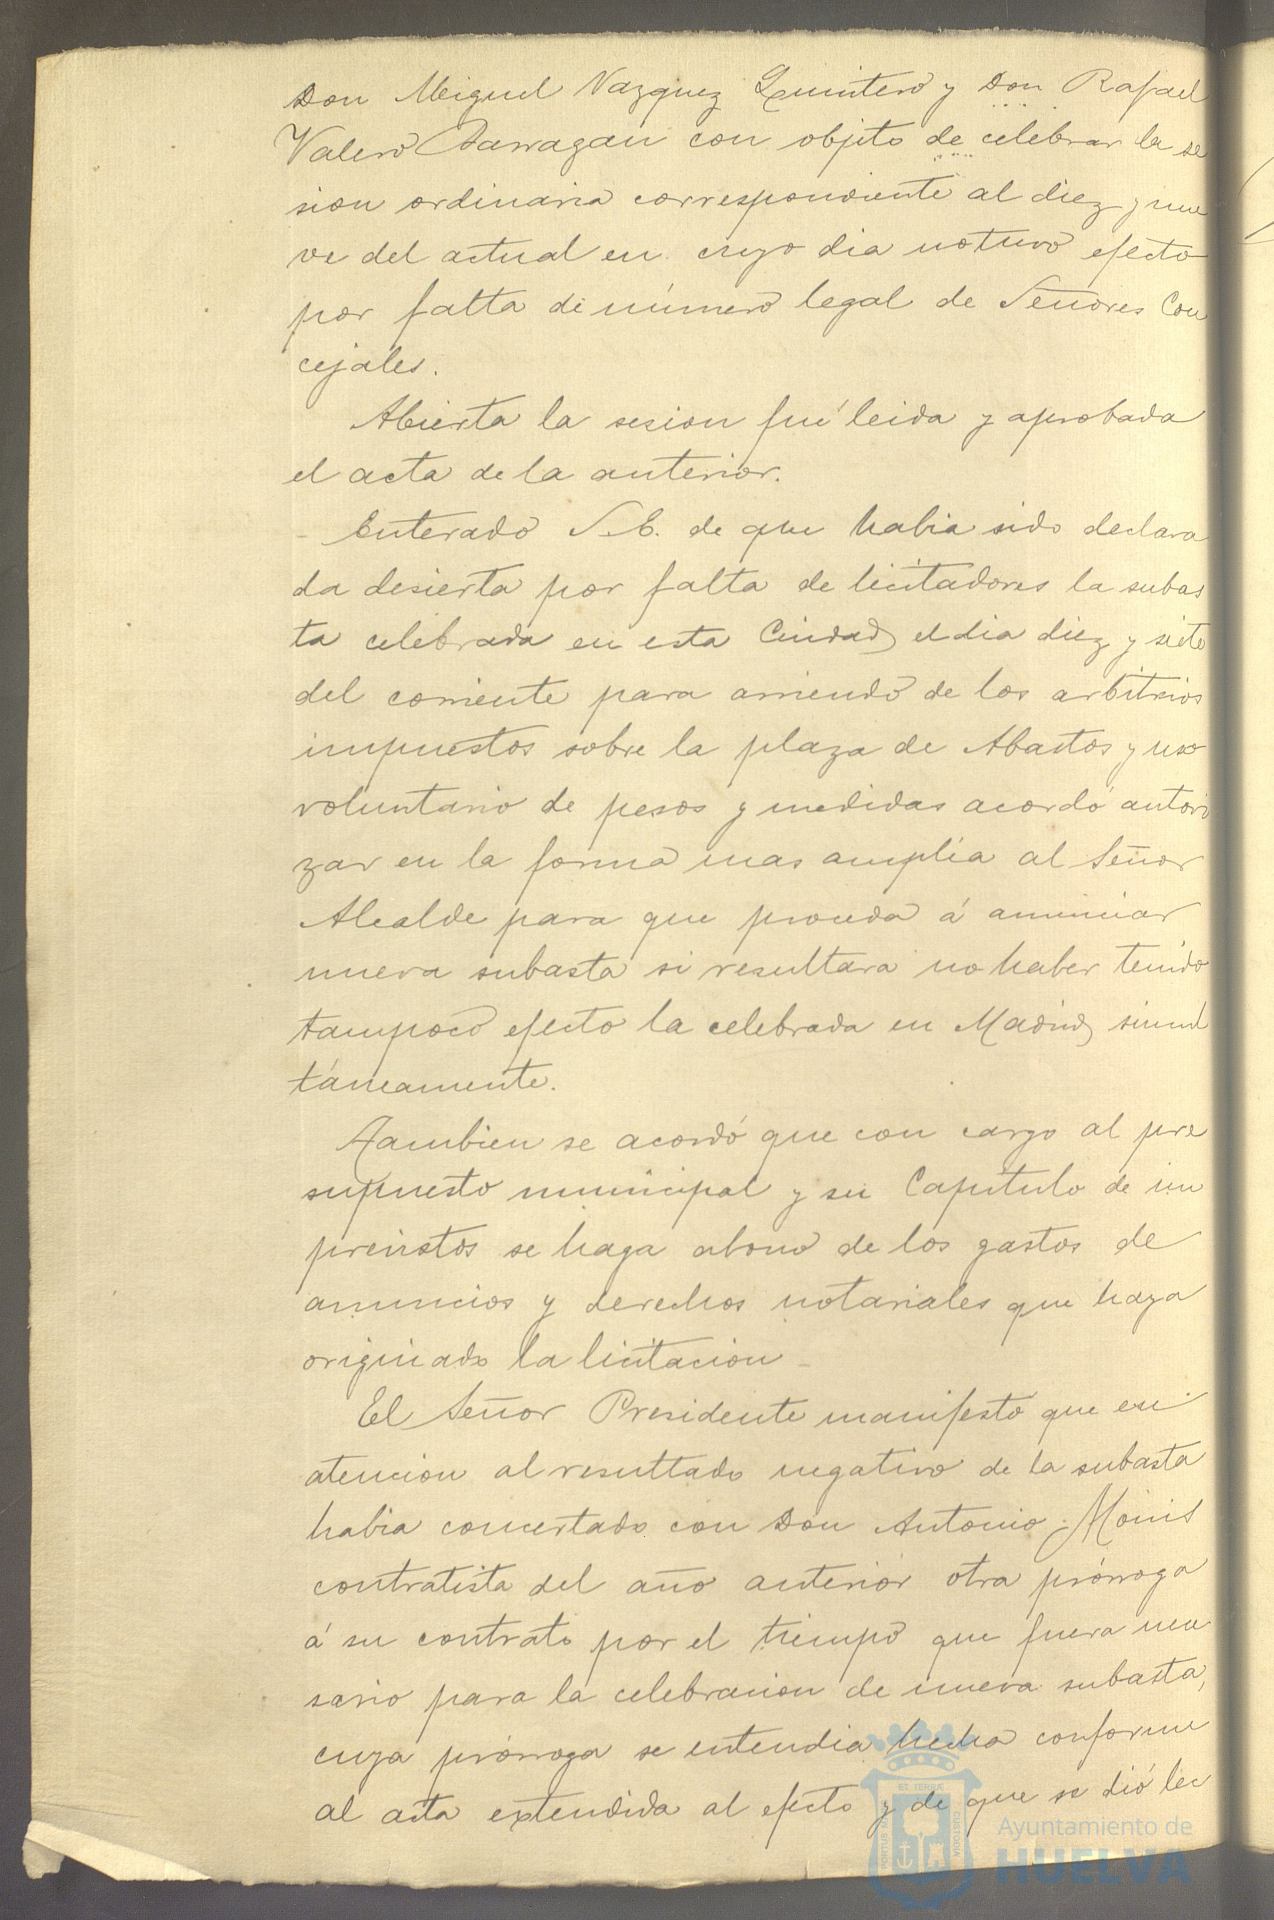 Don Miguel Vazquez Quintero y Don Rafael
Valero Barragan con objeto de celebrar la se
sion ordinaria correspondiente al diez y nue
ve del actual en cuyo dia no tuvo efecto
por falta de número legal de Señores Con
cejales.
Abierta la sesion fué leida y aprobada
el acta de la anterior.
Enterado S.E. de que habia sido declara
da desierta por falta de licitadores la subas
ta celebrada en esta Ciudad el dia diez y siete
del corriente para arriendo de los arbitrios
impuestos sobre la plaza de Abastos y uso
voluntario de pesos y medidas acordó autori
zar en la forma mas amplia al Señor
Alcalde para que proceda á anunciar
nueva subasta si resultara no haber tenido
tampoco efecto la celebrada en Madrid simul
táneamente.
Tambien se acordó que con cargo al pre
supuesto municipal y su Capítulo de im
previstos se haga abono de los gastos de
anuncios y derechos notariales que haya
originado la licitacion
El Señor Presidente manifestó que en
atencion al resultado negativo de la subasta
habia concertado con Don Antonio
contratista del año anterior otra prórroga
á su contrato por el tiempo que fuera nece
sario para la celebracion de nueva subasta,
cuya prórroga se entendia hecha conforme
al acta extendida al efecto y de que se dió lec
PORTUS MARIS ET TERRÆ CUSTODIA
Ayuntamiento de
HUELVA